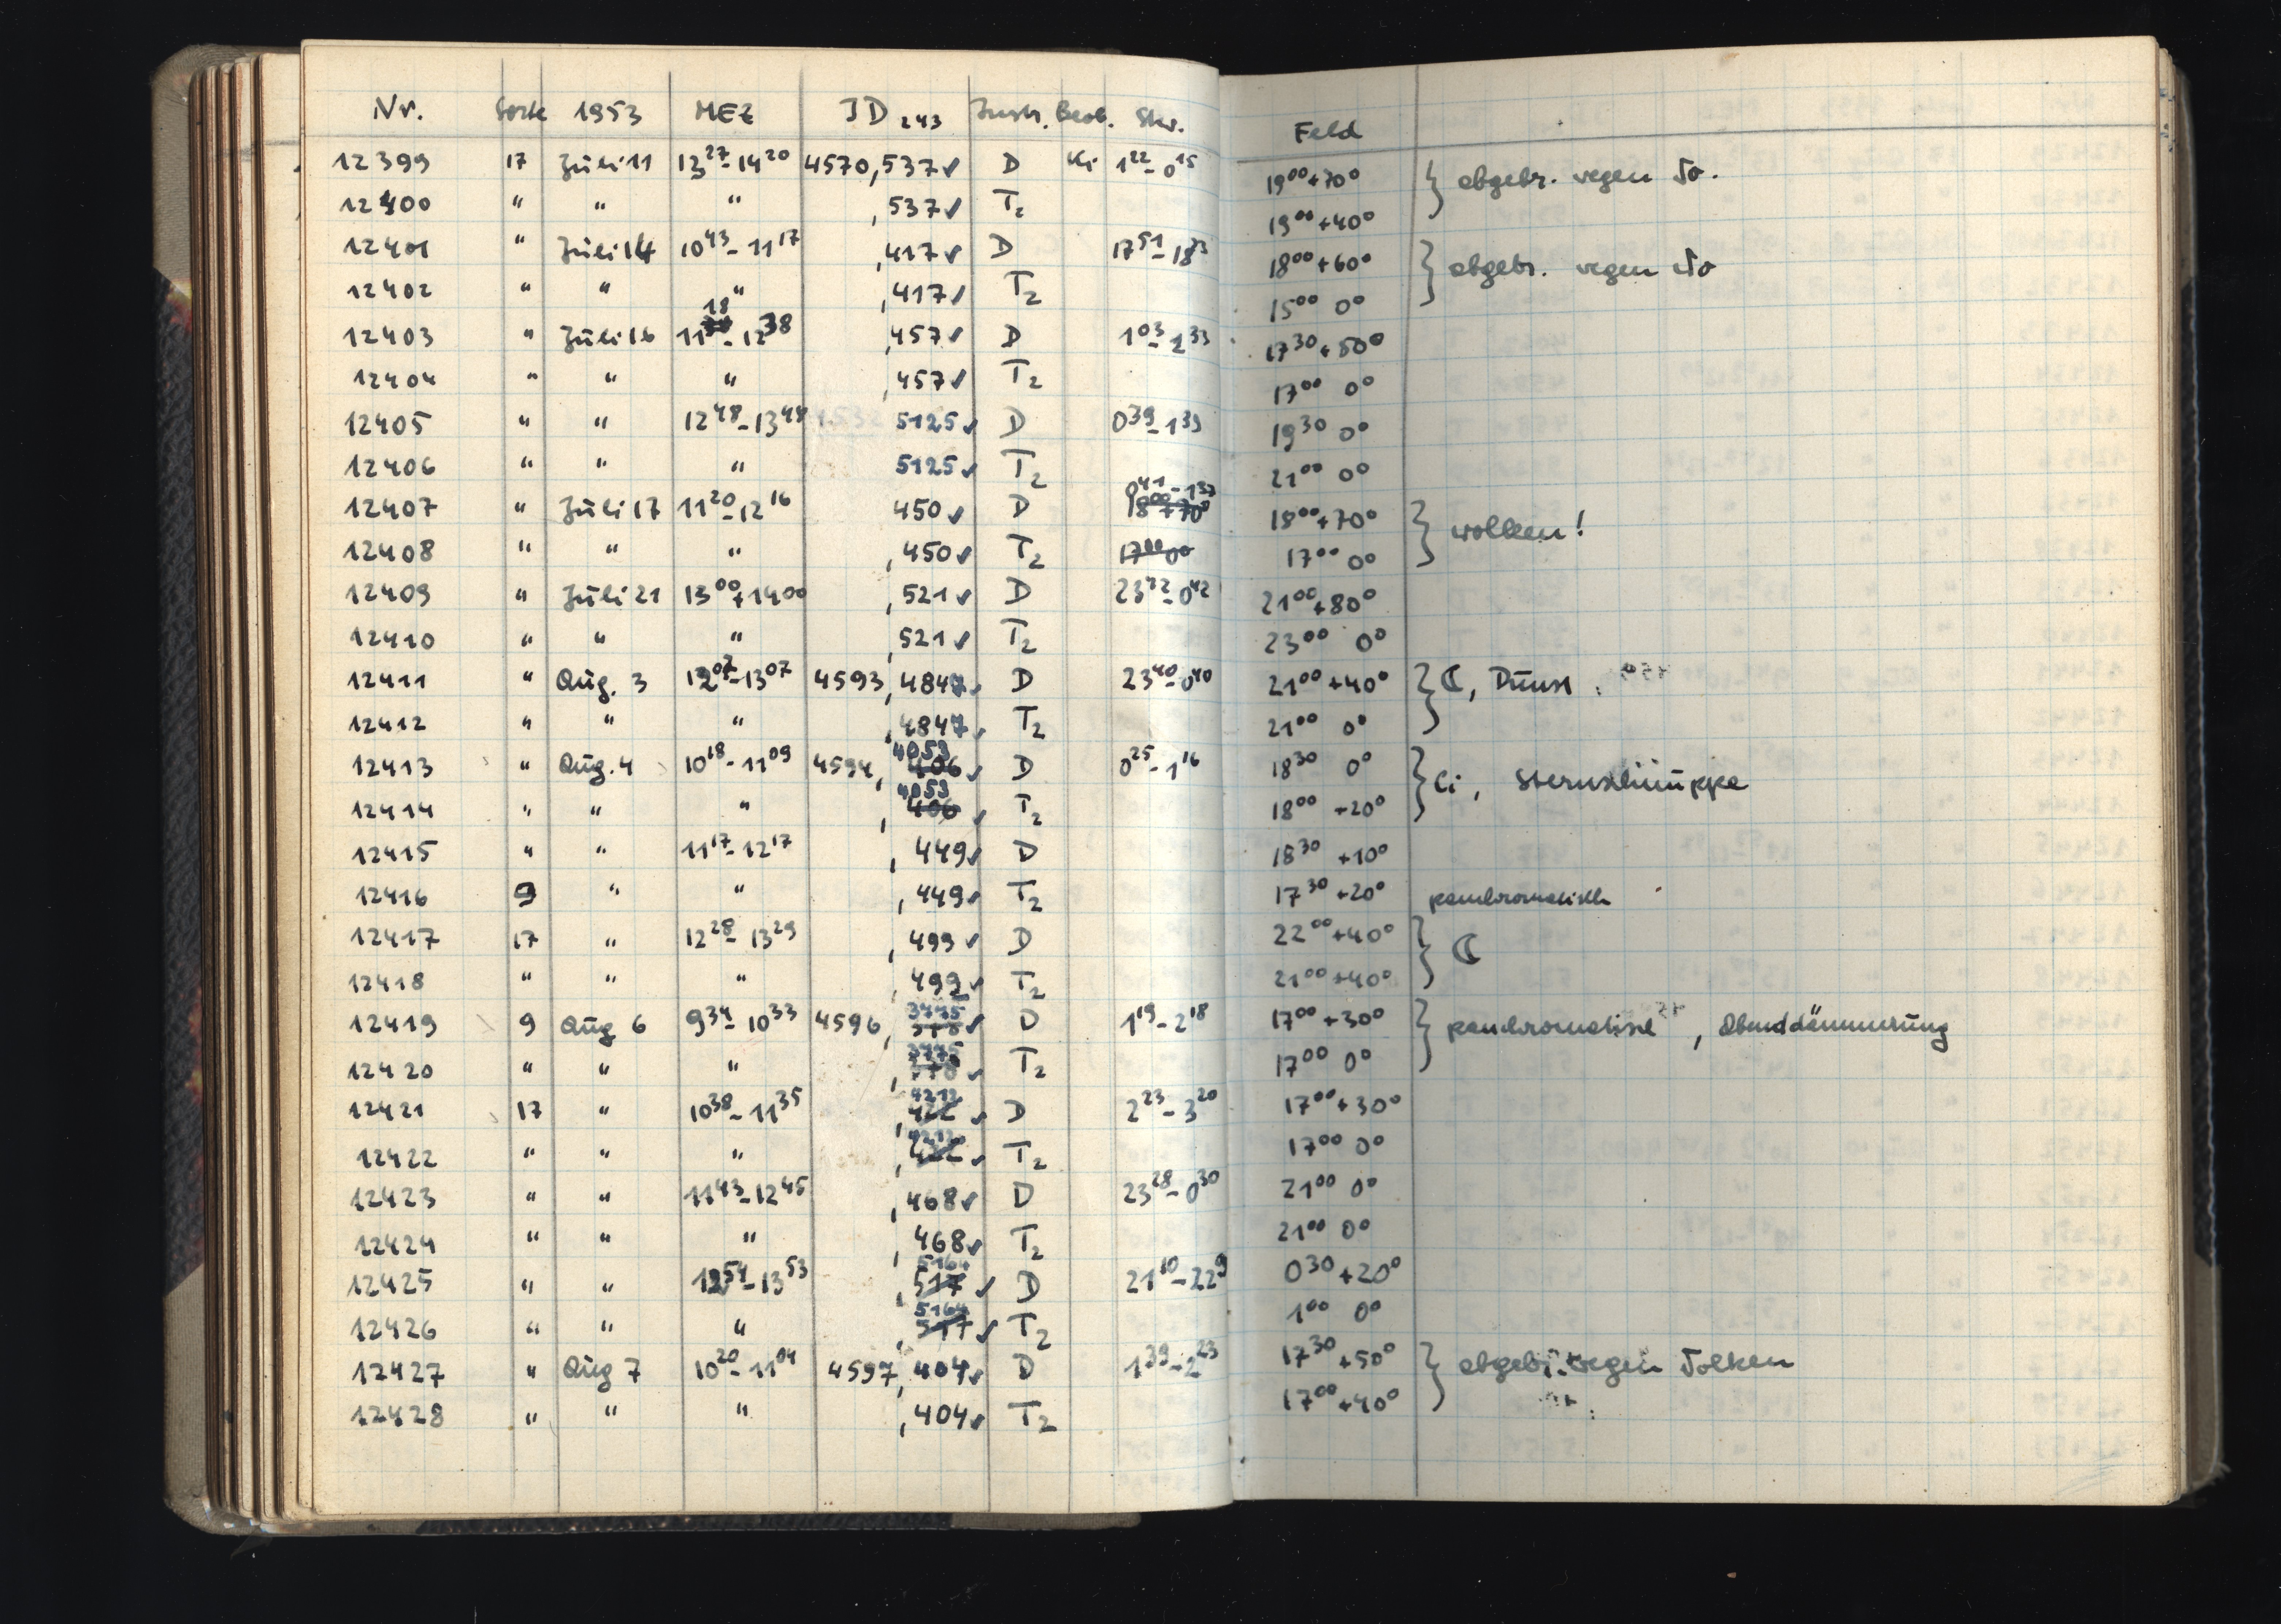 Nr. Sorte 1953 MEZ JD 243 Instr. Beob. Stw. Feld
12399 17 Juli 11 13 27 - 14 20 4570,537✓ D Ki 1 22 - 0 15 19 00 +70° } abgebr. wegen Wo.
12400 " " " ,537✓ T2 19 00 +40°
12401 " Juli 14 10 43 - 11 17 ,417✓ D 17 51 - 18 23 18 00 +60° } abgebr. wegen Wo
12402 " " " ,417✓ T2 15 00 0°
12403 " Juli 16 11 18 - 12 38 ,457✓ D 1 03 - 2 33 17 30 +50°
12404 " " " ,457✓ T2 17 00 0°
12405 " " 12 48 - 13 48 5125✓ D 0 39 - 1 39 19 30 0°
12406 " " " 5125✓ T2 21 00 0°
12407 " Juli 17 11 20 - 12 16 450✓ D 0 41 - 1 37 18 00 +70° 18 00 +70° } Wolken!
12408 " " " ,450✓ T2 17 00 0° 17 00 0°
12409 " Juli 21 13 00 + 14 00 ,521✓ D 23 42 - 0 42 21 00 +80°
12410 " " " ,521✓ T2 23 00 0°
12411 " Aug. 3 12 07 - 13 07 4593,4847✓ D 23 40 - 0 40 21 00 +40° } ☾, Dunst
12412 " " " ,4847✓ T2 21 00 0°
12413 " Aug. 4 10 18 - 11 09 4594, 4053 406✓ D 0 25 - 1 16 18 30 0° } Ci, Sternschnuppe
12414 " " " , 4053 406✓ T2 18 00 +20°
12415 " " 11 17 - 12 17 , 449✓ D 18 30 +10°
12416 9 " " , 449✓ T2 17 30 +20° panchromatisch
12417 17 " 12 28 - 13 29 , 499✓ D 22 00 +40° } ☾
12418 " " " , 499✓ T2 21 00 +40°
12419 9 Aug 6 9 34 - 10 33 4596, 3775 ✓ D 1 19 - 2 18 17 00 +30° } panchromatisch, Abenddämmerung
12420 " " " , 3775 ✓ T2 17 00 0°
12421 17 " 10 38 - 11 35 , 4212 422 ✓ D 2 23 - 3 20 17 00 +30°
12422 " " " , 4212 422 ✓ T2 17 00 0°
12423 " " 11 43 - 12 45 , 468✓ D 23 28 - 0 30 21 00 0°
12424 " " " , 468✓ T2 21 00 0°
12425 " " 12 54 - 13 53 , 5164 517 ✓ D 21 10 - 22 9 0 30 +20°
12426 " " " , 5164 517 ✓ T2 1 00 0°
12427 " Aug 7 10 20 - 11 04 4597, 404✓ D 1 39 - 2 23 17 30 +50° } abgebr. wegen Wolken
12428 " " " , 404✓ T2 17 00 +40°